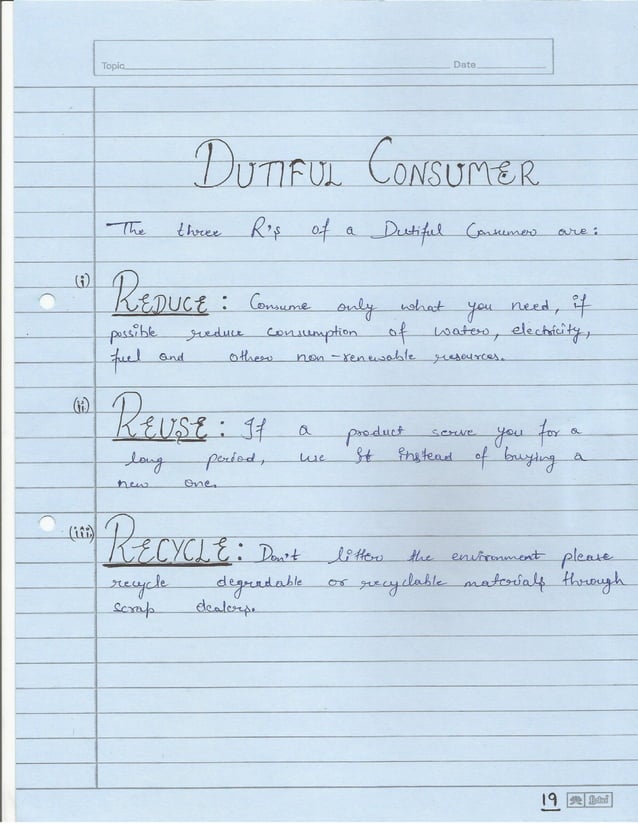 Topic Date
DUTIFUL CONSUMER
The three R's of a Dutiful Consumer are:
(i) REDUCE: Consume only what you need, if
possible reduce consumption of water, electricity,
fuel and other non-renewable resources.
(ii) REUSE: If a product serve you for a
long period, use it instead of buying a
new one.
(iii) RECYCLE: Don't litter the environment please
recycle degradable or recyclable materials through
scrap dealers.
19